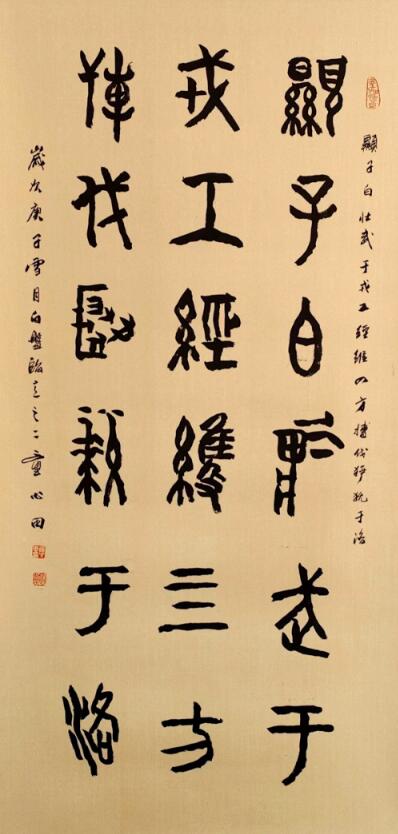 顯子白壯武于戎工經維四方搏伐玁狁于洛
顯子白壯武于
戎工經維四方
搏伐玁狁于洛
歲次庚子雪月白盤臨意之二童心田